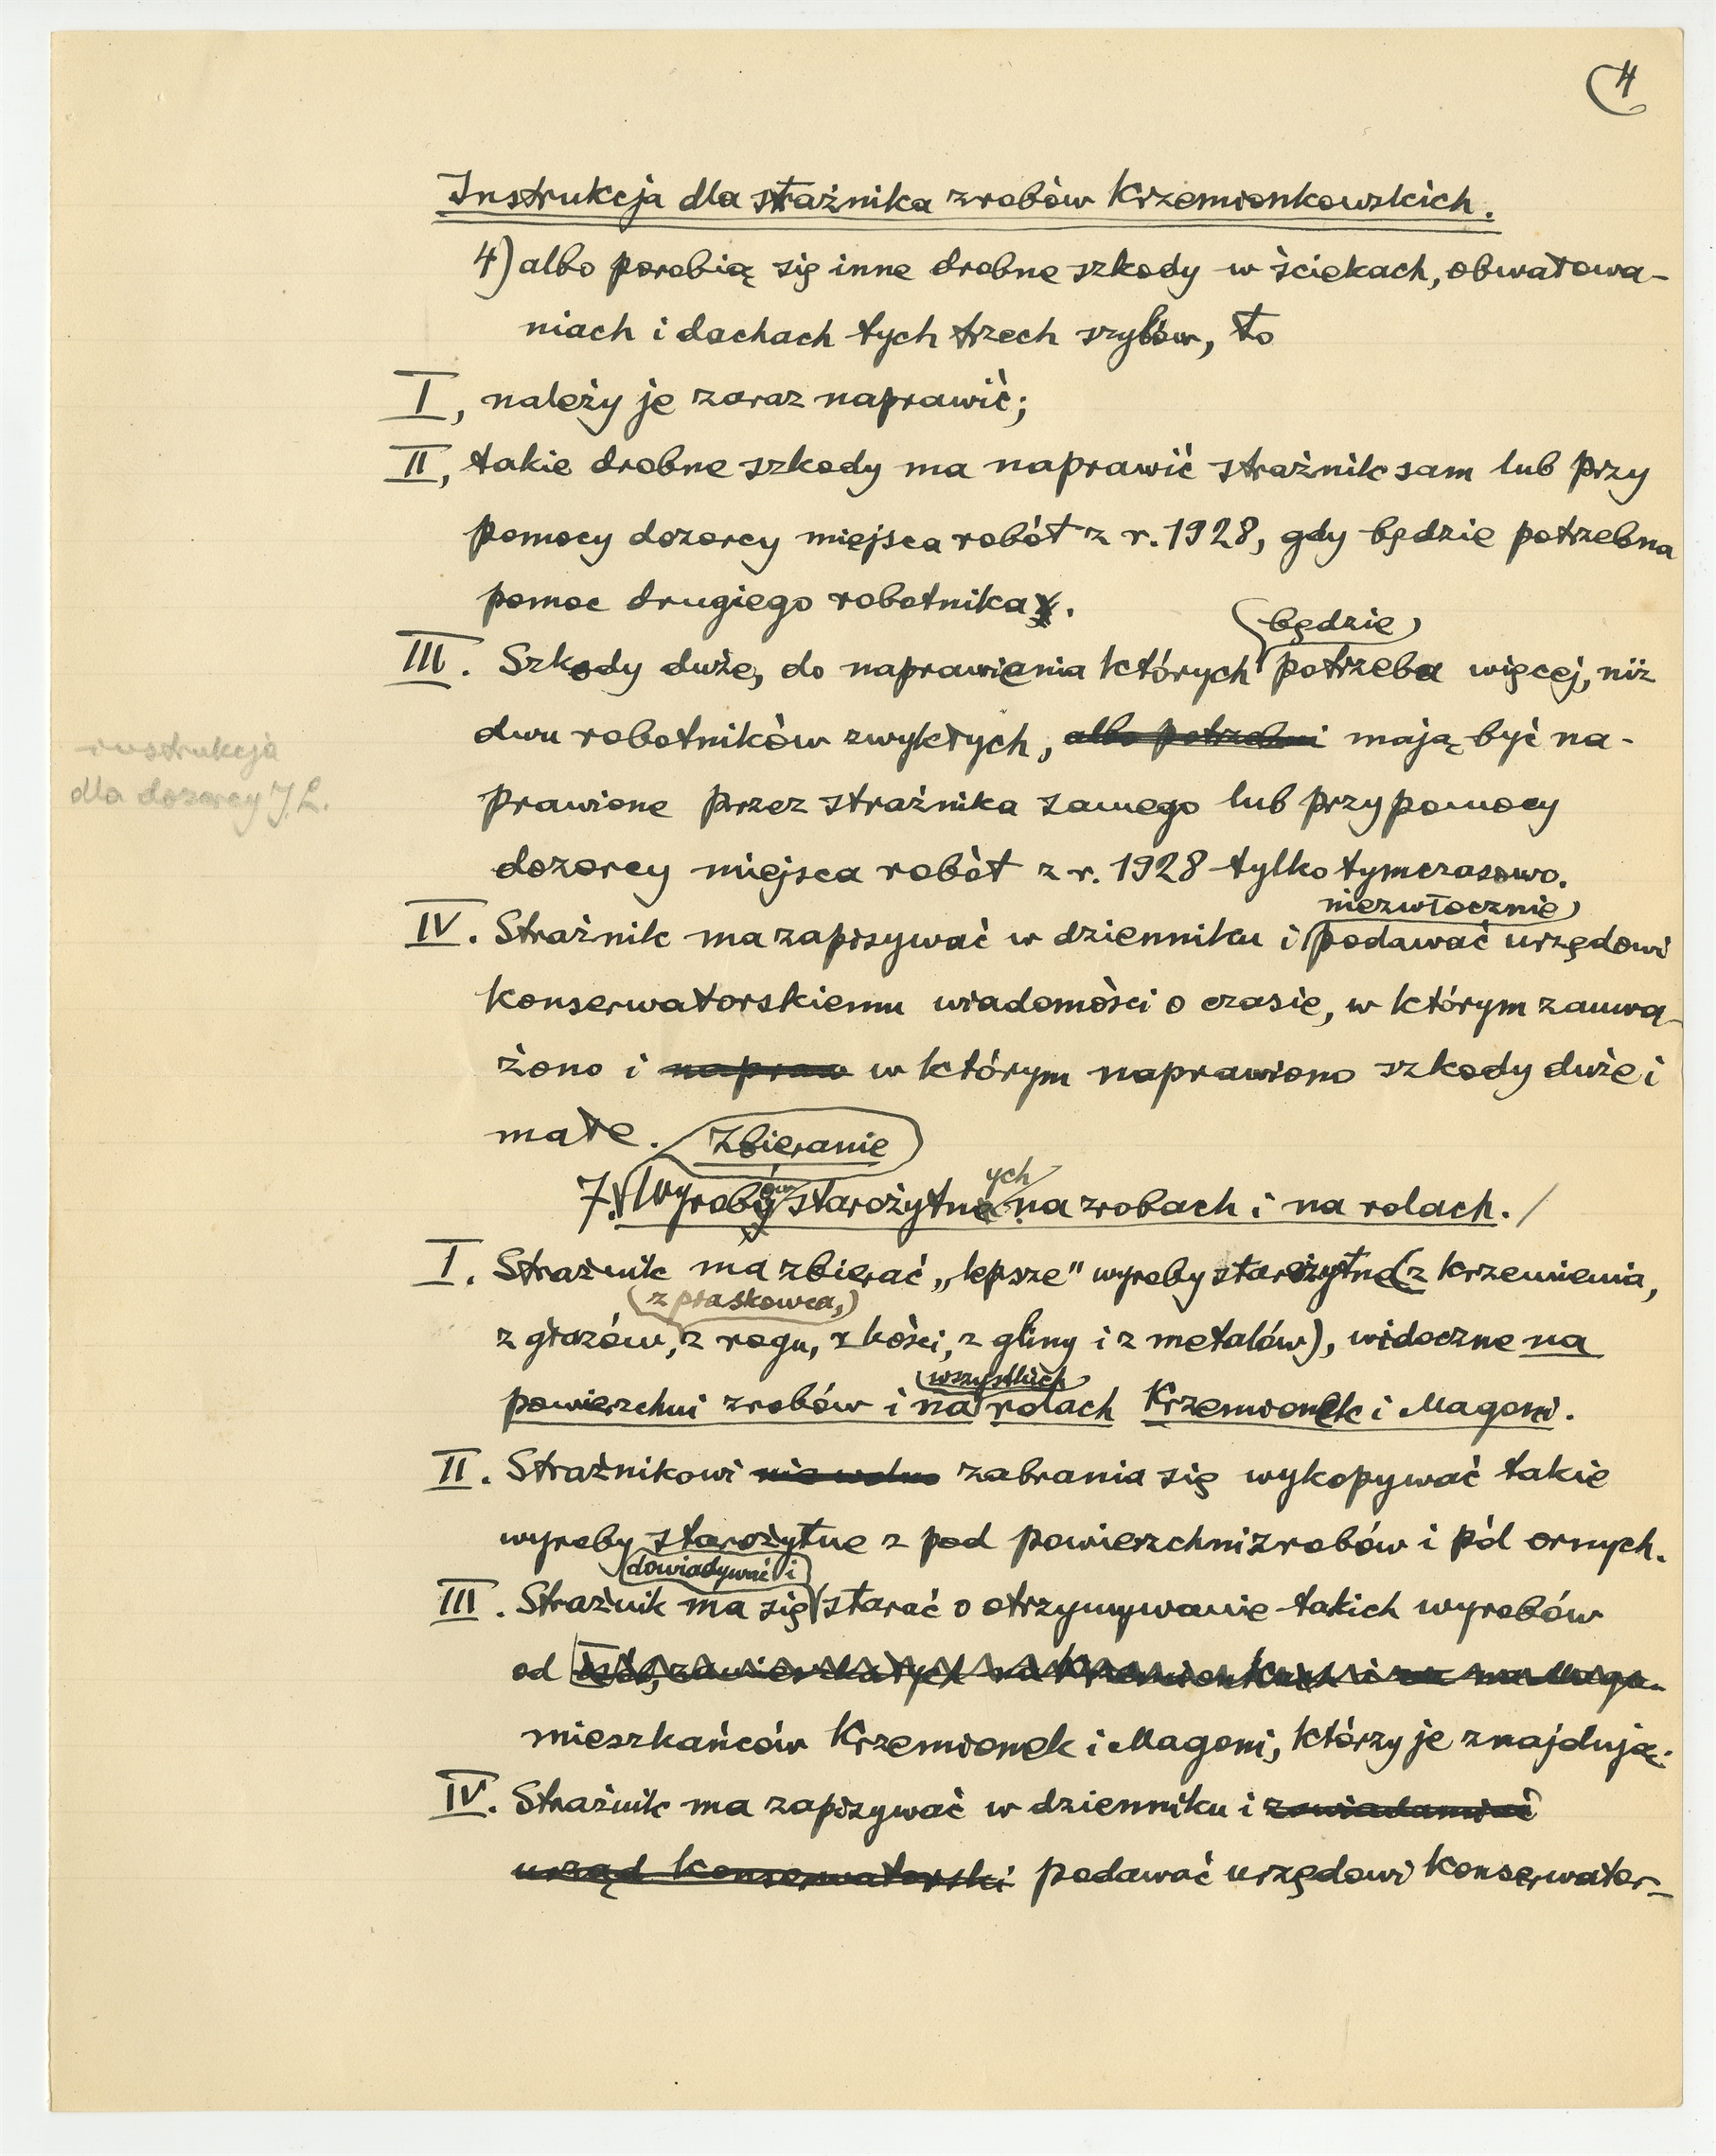 4
Instrukcja dla strażnika zrobów Krzemionkowskich.
4) albo porobią się inne drobne szkody w ściekach, obwałowa-
niach i dachach tych trzech szybów, to
I, należy je zaraz naprawić;
II, takie drobne szkody ma naprawić strażnik sam lub przy
pomocy dozorcy miejsca robót z r. 1928, gdy będzie potrzebna
pomoc drugiego robotnika.
będzie
III. Szkody duże, do naprawiania których potrzeba więcej, niż
dwu robotników zwykłych, albo potrzebni mają być na-
prawione przez strażnika samego lub przy pomocy
instrukcja
dla dozorcy J. L.
dozorcy miejsca robót z r. 1928 tylko tymczasowo.
niezwłocznie
IV. Strażnik ma zapisywać w dzienniku i podawać urzędowi
konserwatorskiemu wiadomości o czasie, w którym zauwa-
żono i napraw w którym naprawiono szkody duże i
małe.
Zbieranie
ów ych
7. Wyroby starożytne na zrobach i na rolach.
I. Strażnik ma zbierać „lepsze" wyroby starożytne (z krzemienia,
z piaskowca,
z głazów, z rogu, z kości, z gliny i z metalów), widoczne na
wszystkich
powierzchni zrobów i na rolach Krzemionek i Magoni.
II. Strażnikowi nie wolno zabrania się wykopywać takie
wyroby starożytne z pod powierzchni zrobów i pól ornych.
dowiadywać i
III. Strażnik ma się starać o otrzymywanie takich wyrobów
od osób, zamieszkałych na Krzemionkach i na Mago-
mieszkańców Krzemionek i Magoni, którzy je znajdują.
IV. Strażnik ma zapisywać w dzienniku i zawiadamiać
urząd konserwatorski podawać urzędowi konserwator-